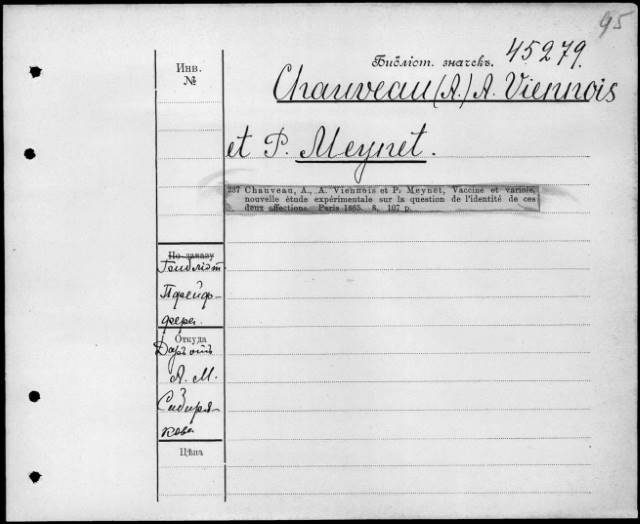 95
Библіот. значекъ. 45279.
Инв.
№
Chauveau (A.) A. Viennois
et P. Meynet.
237 Chauveau, A., A. Viennois et P. Meynet, Vaccine et variole,
nouvelle étude expérimentale sur la question de l'identité de ces
deux affections. Paris 1865. 8. 107 p.
По заказу
Библіот.
Пфейф-
фера.
Откуда
Даръ отъ
А. М.
Сибиря-
кова
Цѣна